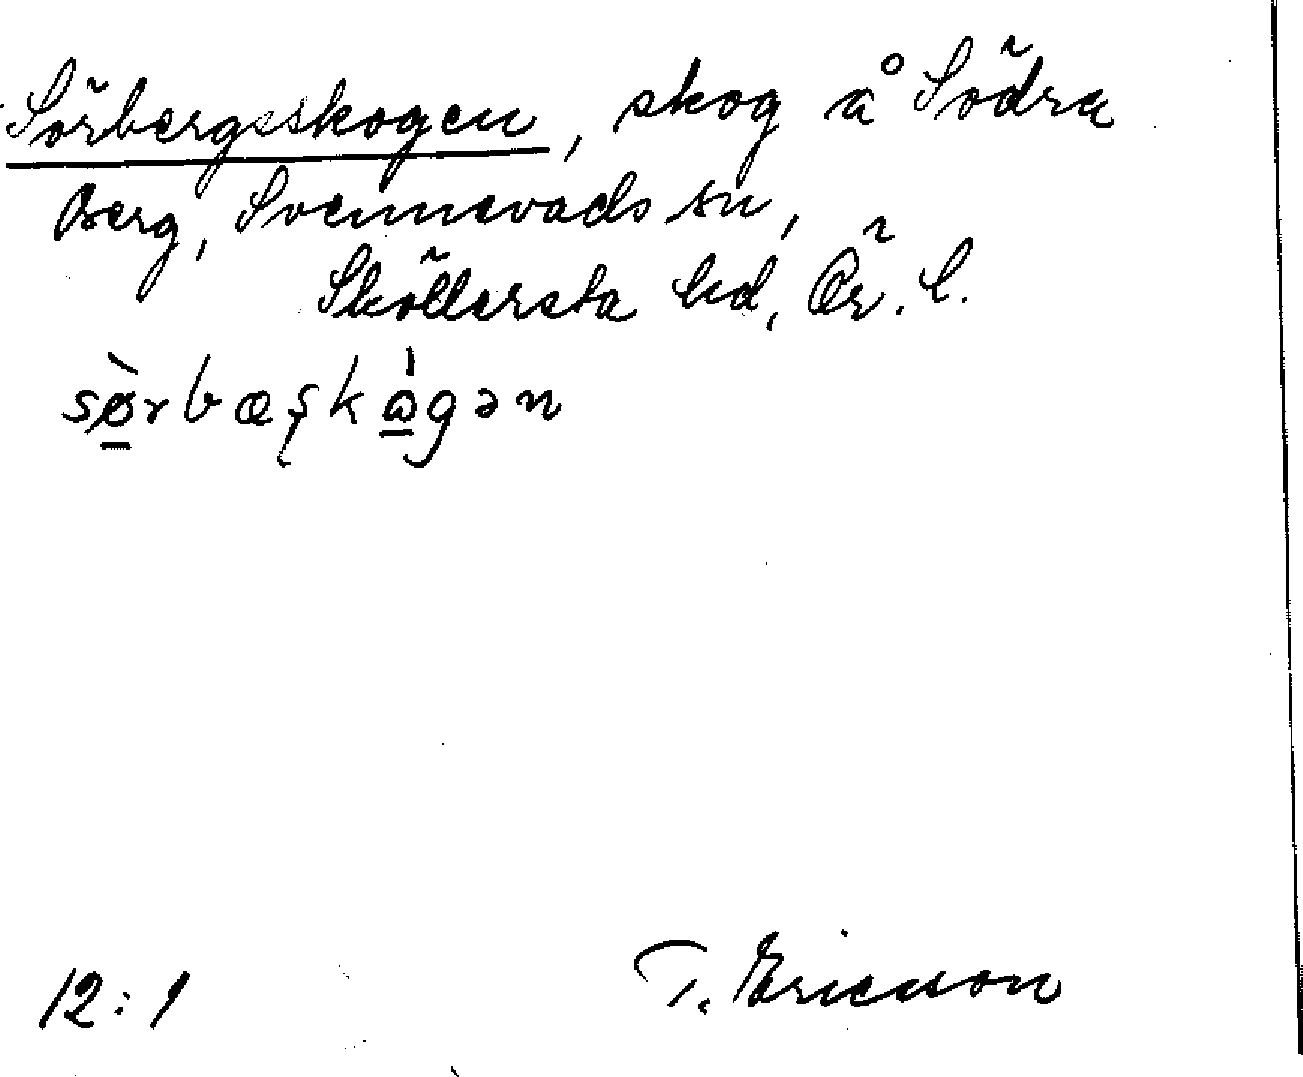 Sörbergsskogen, skog å Södra
Berg, Svennevads sn,
Sköllersta hd, Ör. l.
sø̱̀rbæʂkɷ̱́gən
12:1 T. Ericsson